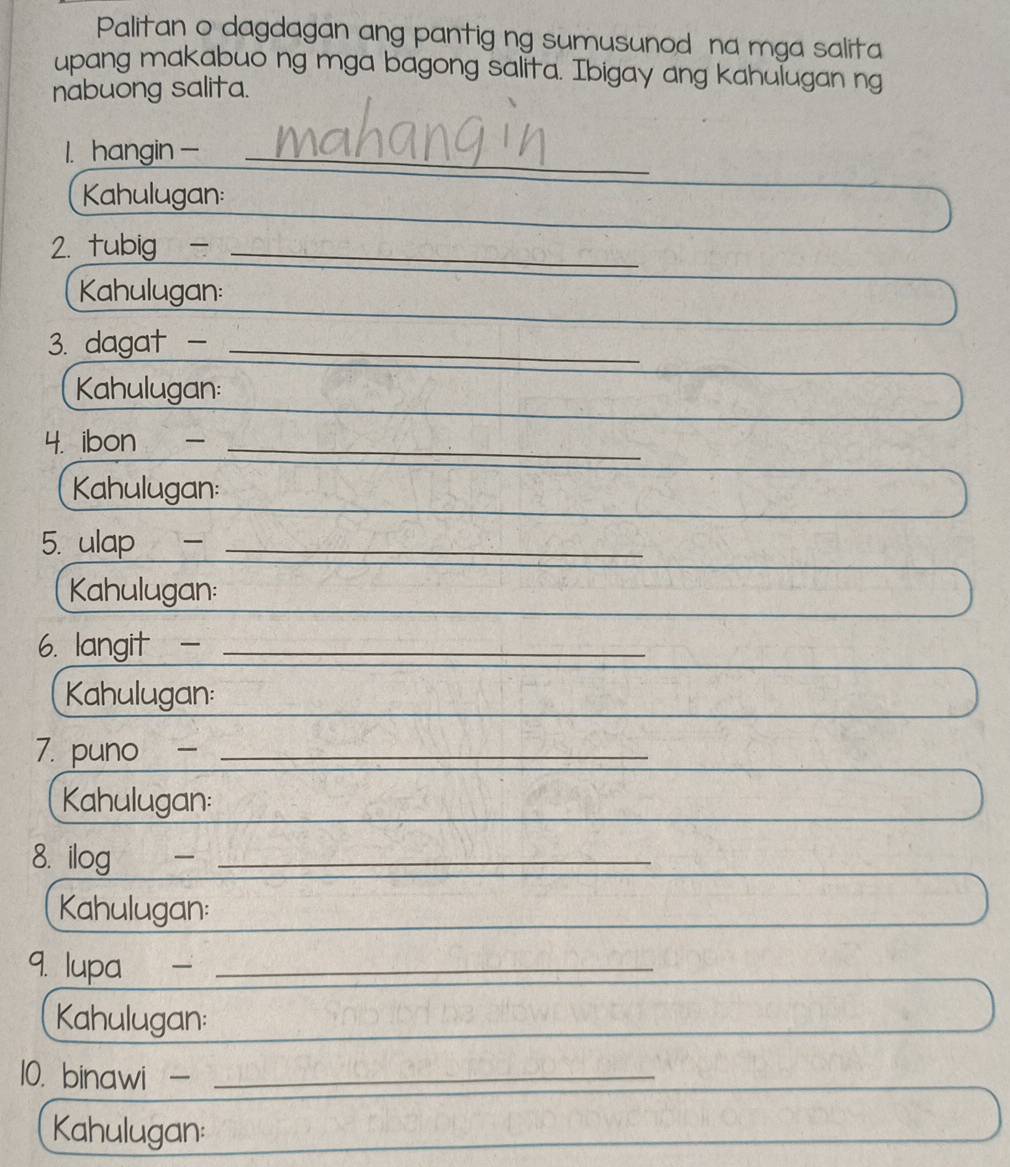 Palitan o dagdagan ang pantig ng sumusunod na mga salita
upang makabuo ng mga bagong salita. Ibigay ang kahulugan ng
nabuong salita.
1. hangin - mahangin
Kahulugan:
2. tubig -
Kahulugan:
3. dagat -
Kahulugan:
4. ibon -
Kahulugan:
5. ulap -
Kahulugan:
6. langit -
Kahulugan:
7. puno -
Kahulugan:
8. ilog -
Kahulugan:
9. lupa -
Kahulugan:
10. binawi -
Kahulugan: